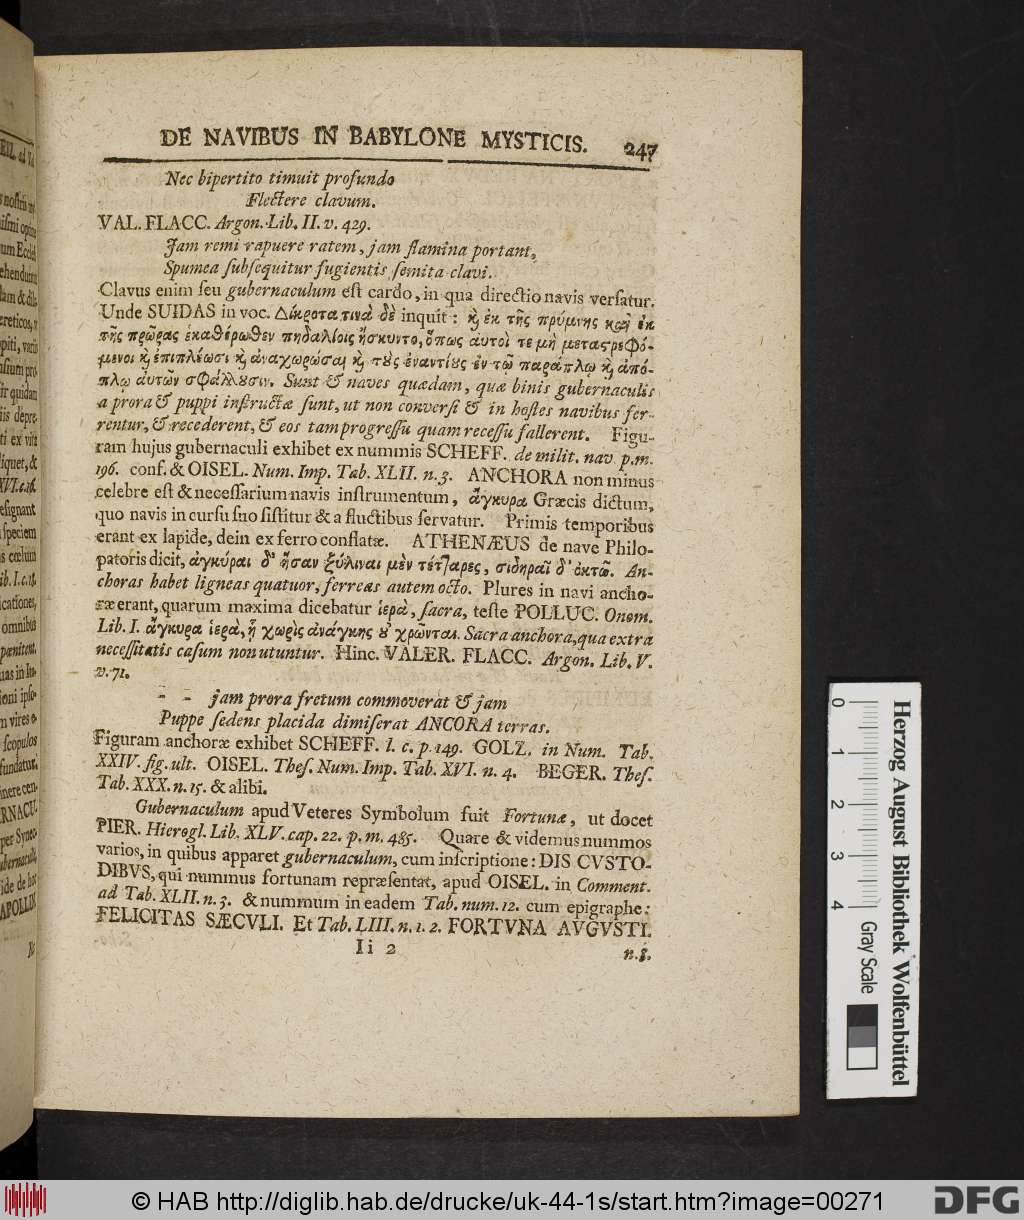 DE NAVIBUS IN BABYLONE MYSTICIS. 247
Nec bipertito timuit profundo
Flectere clavum.
VAL. FLACC. Argon. Lib. II. v. 429.
Jam remi rapuere ratem, jam flamina portant,
Spumea ſubſequitur fugientis ſemita clavi.
Clavus enim ſeu gubernaculum eſt cardo, in qua directio navis verſatur.
Unde SUIDAS in voc. Δίκροτα τινὰ δὲ inquit: ϗ ἐκ τῆς πρύμνης καὶ ἐκ
τῆς πρῶρας ἑκαθέρωθεν πηδαλίοις ἤσκυντο, ὅπως αυτοὶ τε μὴ μεταςρεφό-
μενοι ϗ ἐπιπλέωσι ϗ ἀναχωρώσαι ϗ τοὺς ἐναντίους ἐν τῷ παράπλῳ ϗ ἀπό-
πλῳ αυτῶν σφάλλουσιν. Sunt & naves quædam, quæ binis gubernaculis
a prora & puppi inſtructæ ſunt, ut non converſi & in hoſtes navibus fer-
rentur, & recederent, & eos tam progreſſu quam receſſu fallerent. Figu-
ram hujus gubernaculi exhibet ex nummis SCHEFF. de milit. nav p. m.
196. conf. & OISEL. Num. Imp. Tab. XLII. n. 3. ANCHORA non minus
celebre eſt & neceſſarium navis inſtrumentum, ἄγκυρα Græcis dictum,
quo navis in curſu ſno ſiſtitur & a fluctibus ſervatur. Primis temporibus
erant ex lapide, dein ex ferro conflatæ. ATHENÆUS de nave Philo-
patoris dicit, ἀγκύραι δ' ἦσαν ξύλιναι μὲν τέτταρες, σιδηραῖ δ' ὀκτῶ. An-
choras habet ligneas quatuor, ferreas autem octo. Plures in navi ancho-
ræ erant, quarum maxima dicebatur ἱερὰ, ſacra, teſte POLLUC. Onom.
Lib. I. ἄγκυρα ἱερὰ, ᾗ χωρὶς ἀνάγκης οὐ χρῶνται. Sacra anchora, qua extra
neceſſitatis caſum non utuntur. Hinc. VALER. FLACC. Argon. Lib. V.
v. 71.
- - jam prora fretum commoverat & jam
Puppe ſedens placida dimiſerat ANCORA terras.
Figuram anchoræ exhibet SCHEFF. l. c. p. 149. GOLZ. in Num. Tab.
XXIV. fig. ult. OISEL. Theſ. Num. Imp. Tab. XVI. n. 4. BEGER. Theſ.
Tab. XXX. n. 15. & alibi.
Gubernaculum apud Veteres Symbolum fuit Fortunæ, ut docet
PIER. Hierogl. Lib. XLV. cap. 22. p. m. 485. Quare & videmus nummos
varios, in quibus apparet gubernaculum, cum inſcriptione: DIS CVSTO-
DIBVS, qui nummus fortunam repræſentat, apud OISEL. in Comment.
ad Tab. XLII. n. 3. & nummum in eadem Tab. num. 12. cum epigraphe:
FELICITAS SÆCVLI. Et Tab. LIII. n. 1. 2. FORTVNA AVGVSTI.
Ii 2 n. 8.
0 1 2 3 4
Gray Scale
Herzog August Bibliothek Wolfenbüttel
© HAB http://diglib.hab.de/drucke/uk-44-1s/start.htm?image=00271
DFG